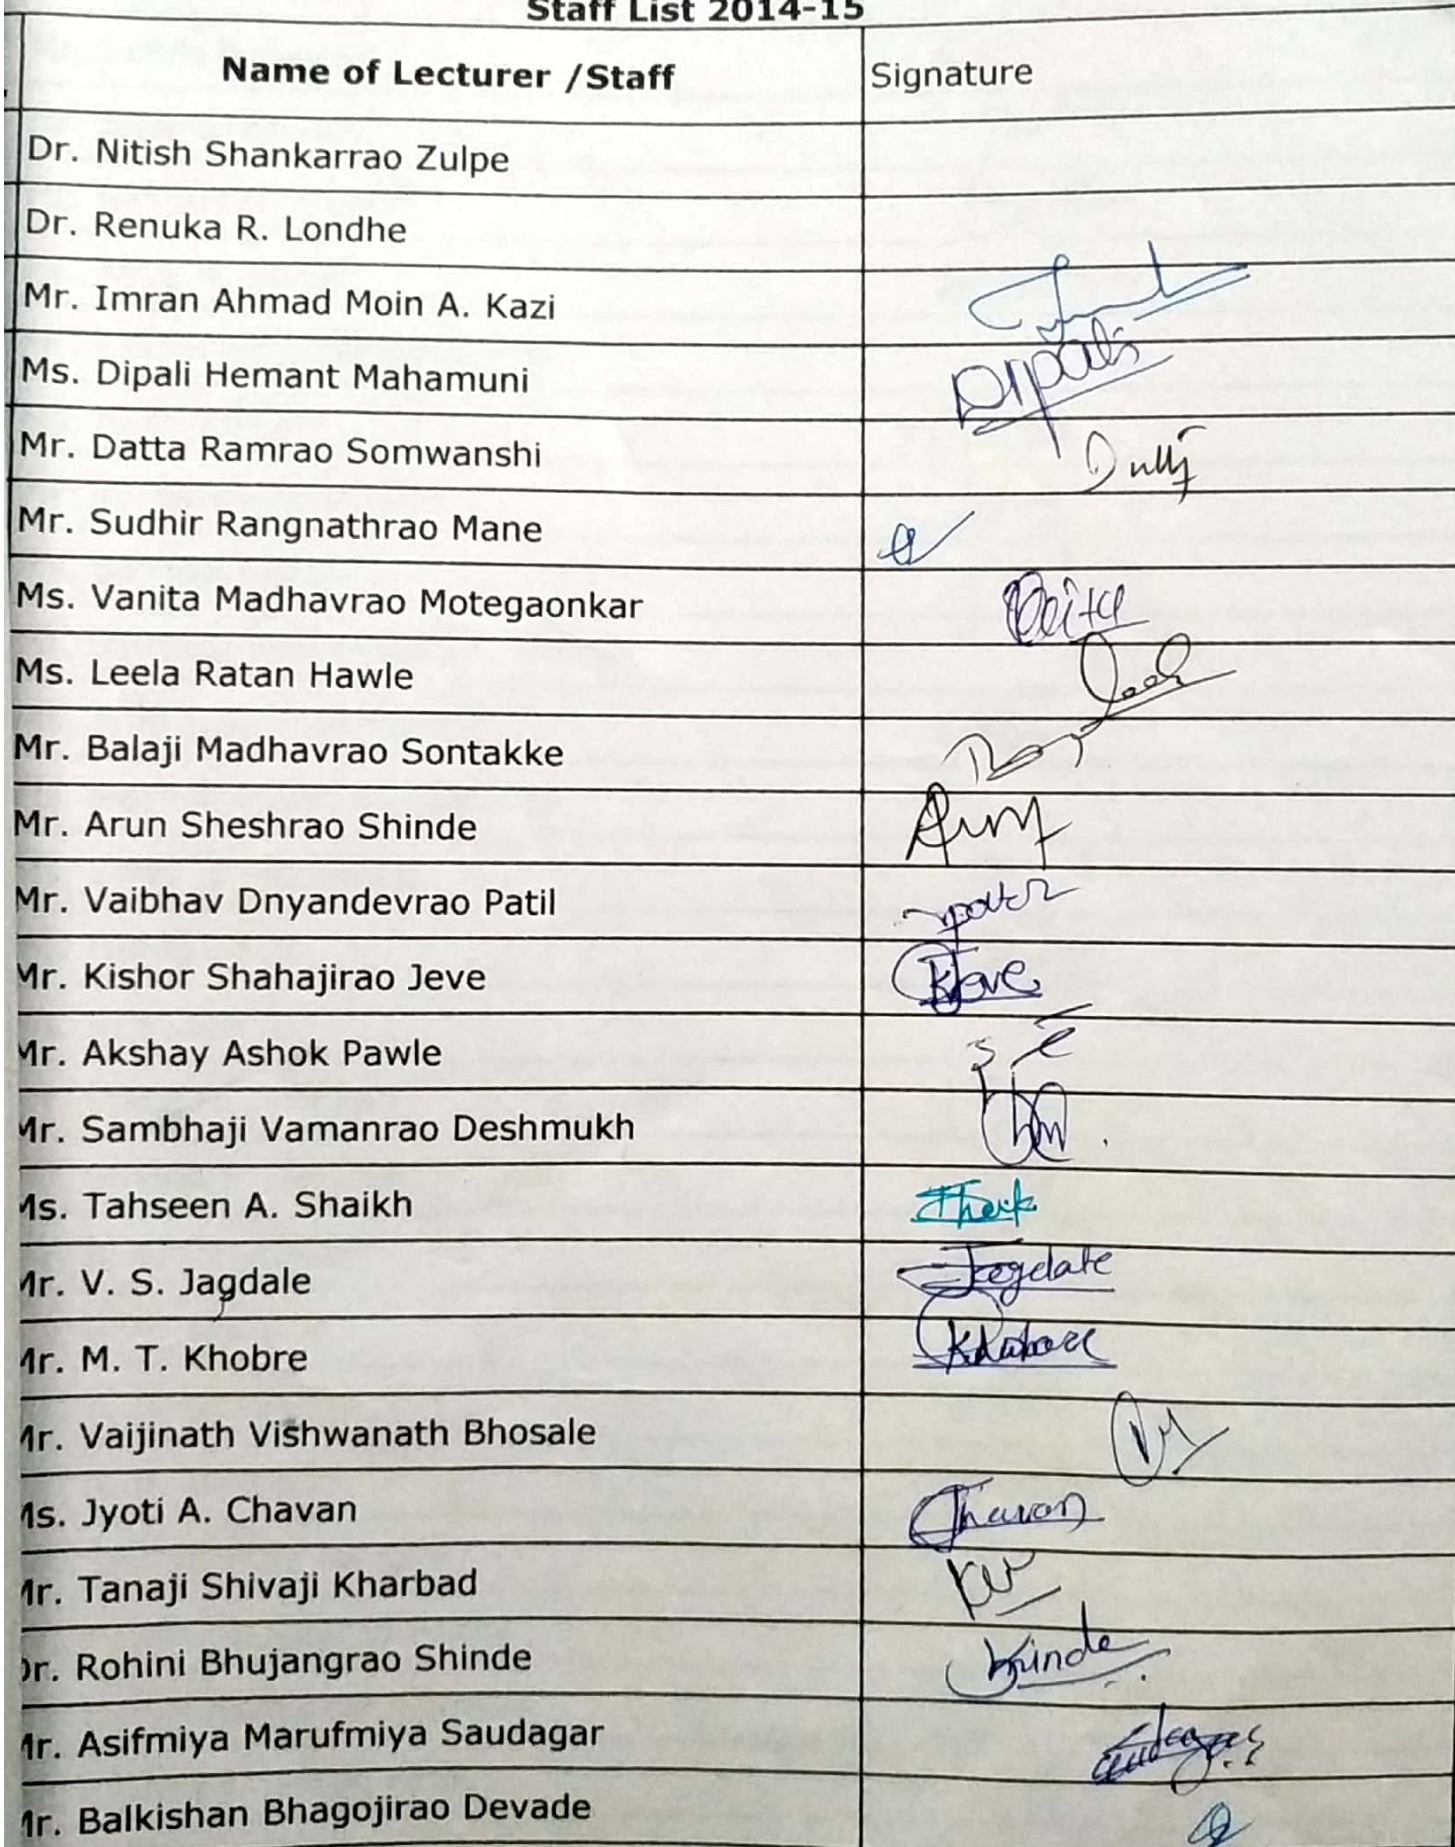 Staff List 2014-15
Name of Lecturer /Staff Signature
Dr. Nitish Shankarrao Zulpe
Dr. Renuka R. Londhe
Mr. Imran Ahmad Moin A. Kazi
Ms. Dipali Hemant Mahamuni Dipali
Mr. Datta Ramrao Somwanshi
Mr. Sudhir Rangnathrao Mane
Ms. Vanita Madhavrao Motegaonkar
Ms. Leela Ratan Hawle
Mr. Balaji Madhavrao Sontakke
Mr. Arun Sheshrao Shinde
Mr. Vaibhav Dnyandevrao Patil
Mr. Kishor Shahajirao Jeve
Mr. Akshay Ashok Pawle
Mr. Sambhaji Vamanrao Deshmukh
Ms. Tahseen A. Shaikh
Mr. V. S. Jagdale Jagdale
Mr. M. T. Khobre
Mr. Vaijinath Vishwanath Bhosale
Ms. Jyoti A. Chavan Chavan
Mr. Tanaji Shivaji Kharbad
Dr. Rohini Bhujangrao Shinde
Mr. Asifmiya Marufmiya Saudagar
Mr. Balkishan Bhagojirao Devade